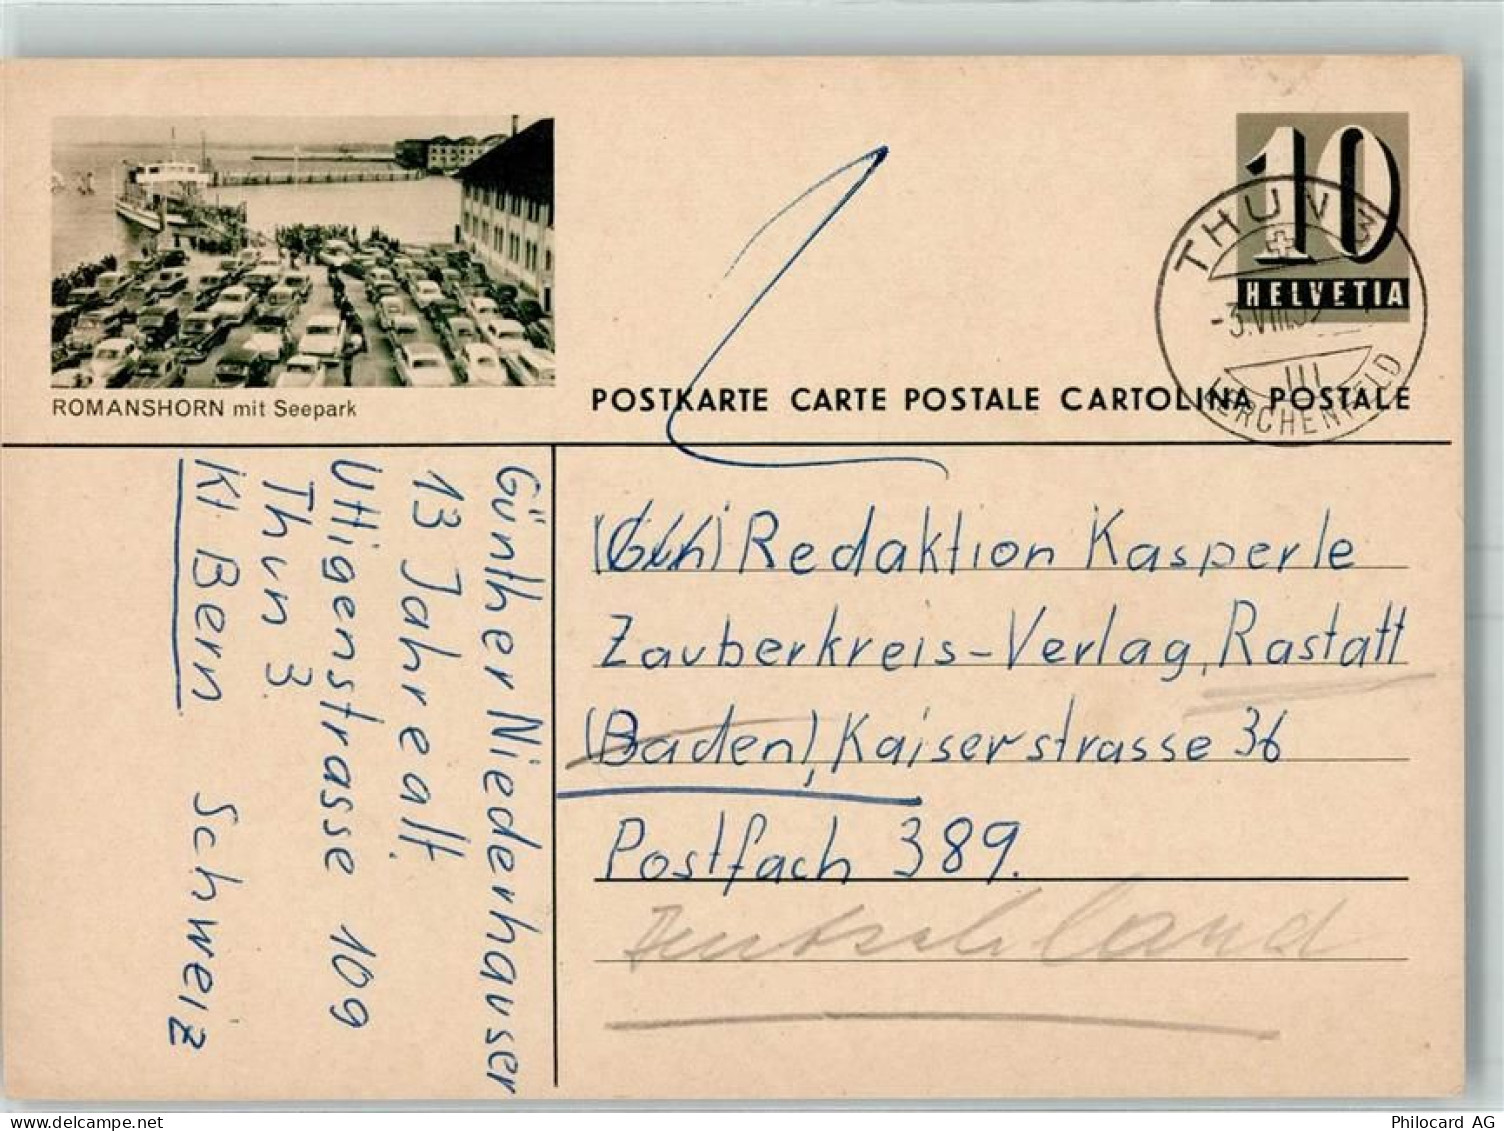 ROMANSHORN mit Seepark
10
HELVETIA
THUN 3
-3.VIII.5
LERCHENFELD
POSTKARTE CARTE POSTALE CARTOLINA POSTALE
Redaktion Kasperle
Zauberkreis-Verlag, Rastatt
(Baden), Kaiserstrasse 36
Postfach 389.
Deutschland
Günther Niederhauser
13 Jahre alt.
Uttigenstrasse 109
Thun 3.
Kt Bern Schweiz
delcampe.net
Philocard AG